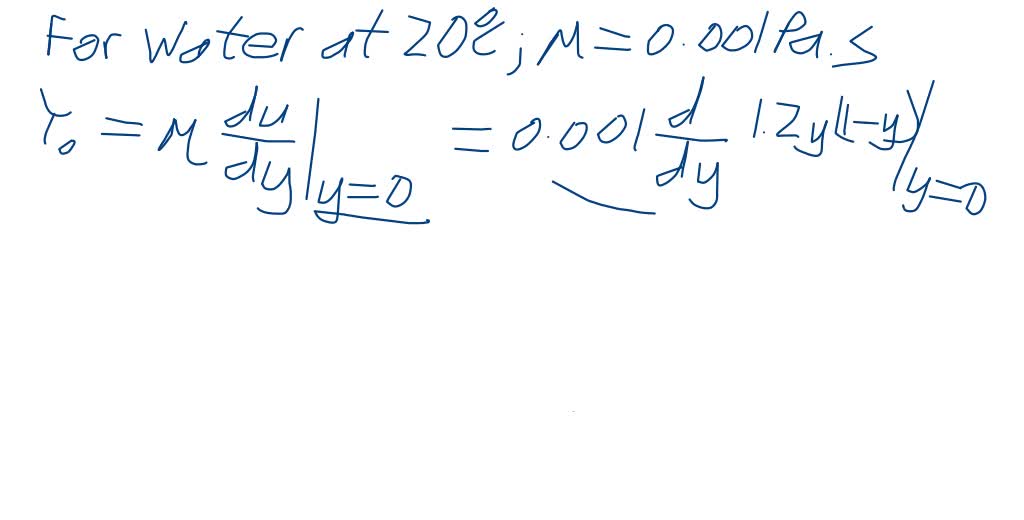 For Water at 20℃; μ=0.001Pa.s
τ₀ = μ du/dy|y=0 = 0.001 d/dy 1.2y(1-y)|y=0